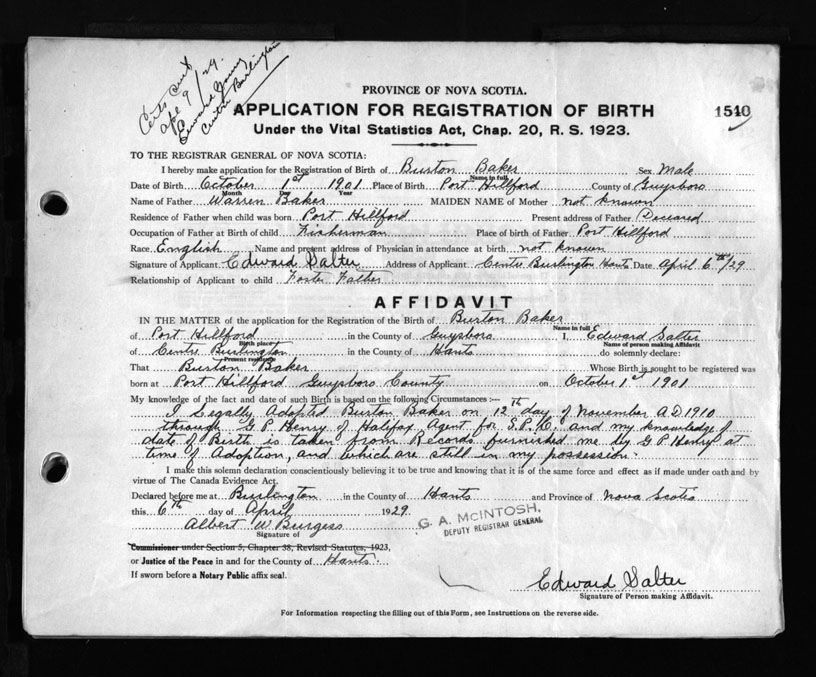 Certs sent
Apl 9/29.
Edward
Centre Burlington
PROVINCE OF NOVA SCOTIA.
APPLICATION FOR REGISTRATION OF BIRTH
1540
Under the Vital Statistics Act, Chap. 20, R. S. 1923.
TO THE REGISTRAR GENERAL OF NOVA SCOTIA:
I hereby make application for the Registration of Birth of Burton Baker Sex Male
Name in full
Date of Birth October 1st 1901 Place of Birth Port Hillford County of Guysboro
Month Day Year
Name of Father Warren Baker MAIDEN NAME of Mother not known
Residence of Father when child was born Port Hillford Present address of Father Deceased
Occupation of Father at Birth of child Fisherman Place of birth of Father Port Hillford
Race English Name and present address of Physician in attendance at birth not known
Signature of Applicant Edward Salter Address of Applicant Centre Burlington Hants Date April 6th/29
Relationship of Applicant to child Foster Father
AFFIDAVIT
IN THE MATTER of the application for the Registration of the Birth of Burton Baker
Name in full
of Port Hillford in the County of Guysboro I, Edward Salter
Birth place Name of person making Affidavit
of Centre Burlington in the County of Hants do solemnly declare:
Present residence
That Burton Baker Whose Birth is sought to be registered was
born at Port Hillford Guysboro County on October 1st 1901
My knowledge of the fact and date of such Birth is based on the following Circumstances :—
I Legally Adopted Burton Baker on 12th day of November A.D. 1910
through G P Henry of Halifax Agent for S.P.C. and my knowledge of
date of Birth is taken from Records furnished me by G P Henry at
time of Adoption, and which are still in my possession.
I make this solemn declaration conscientiously believing it to be true and knowing that it is of the same force and effect as if made under oath and by
virtue of The Canada Evidence Act.
Declared before me at Burlington in the County of Hants and Province of Nova Scotia
this 6th day of April 1929.
G. A. McINTOSH,
DEPUTY REGISTRAR GENERAL
Albert W Burgess
Signature of
Commissioner under Section 5, Chapter 38, Revised Statutes, 1923,
or Justice of the Peace in and for the County of Hants
If sworn before a Notary Public affix seal.
Edward Salter
Signature of Person making Affidavit.
For Information respecting the filling out of this Form, see Instructions on the reverse side.